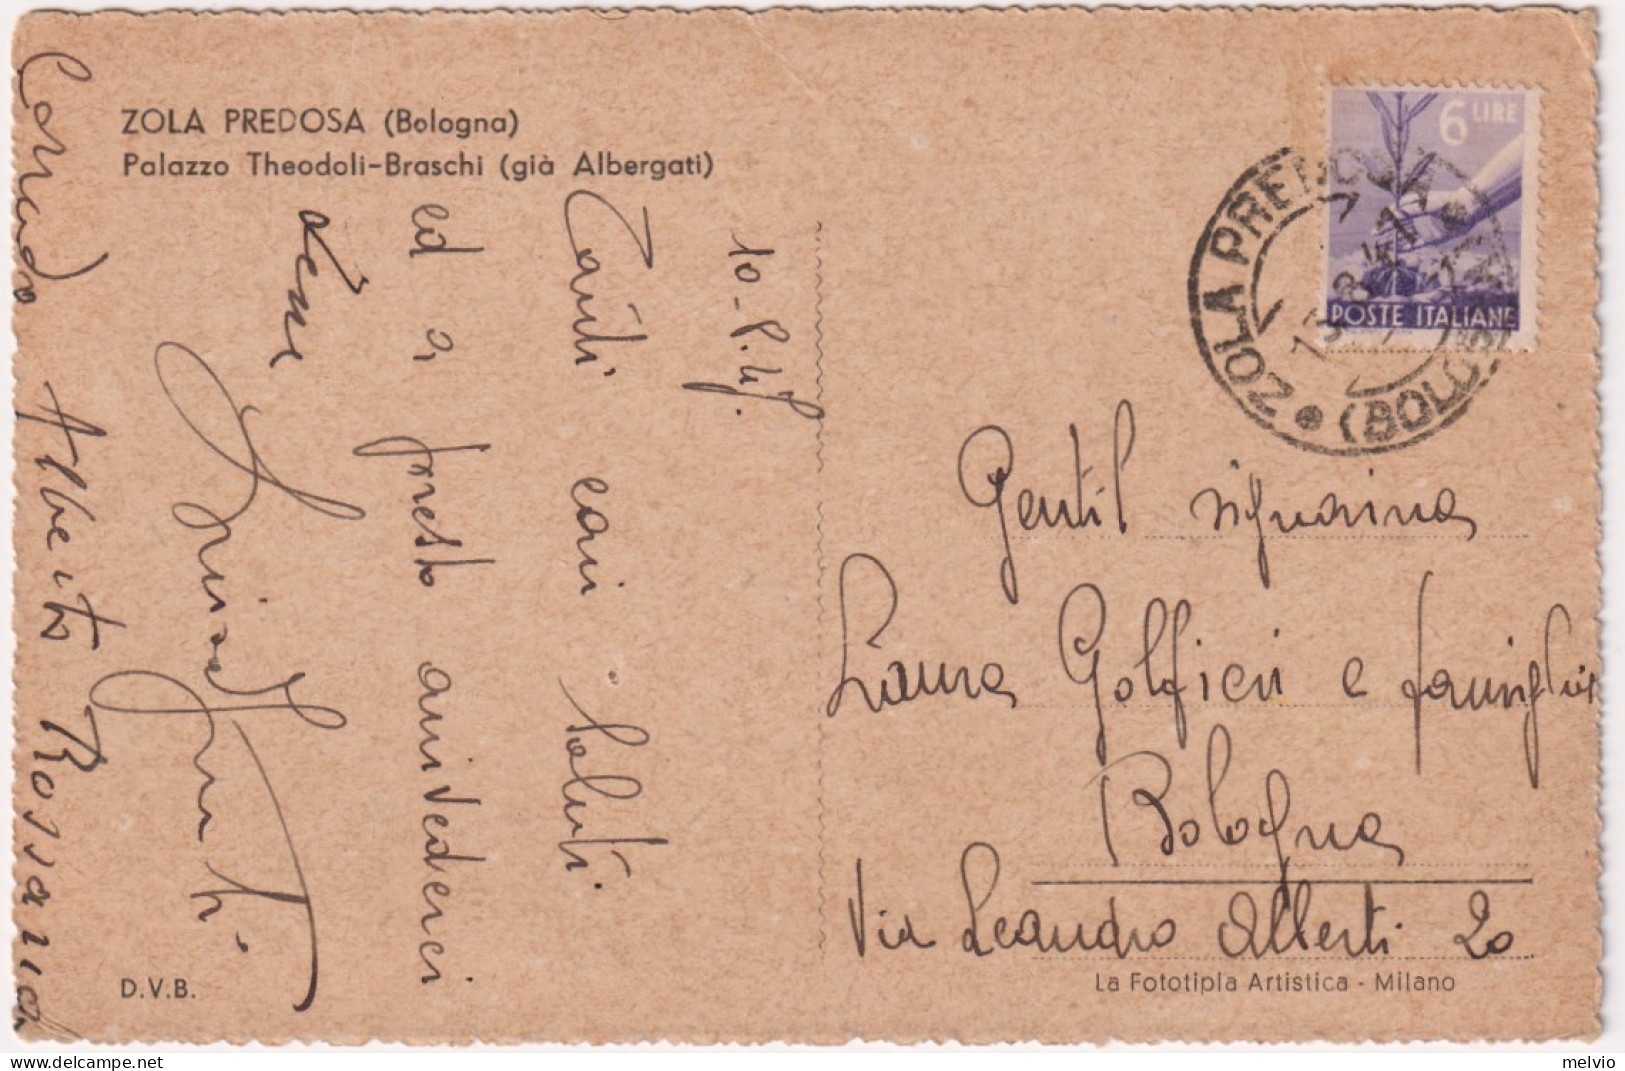 ZOLA PREDOSA (Bologna)
Palazzo Theodoli-Braschi (già Albergati)
10-8-47.
Tanti cari saluti
ed a presto arrivederci
Corrado Alberto Rossana
D.V.B.
6 LIRE
POSTE ITALIANE
ZOLA PREDOSA
(BOLOGNA)
Gentil signorina
Laura Golfieri e famiglia
Bologna
Via Leandro Alberti 20
La Fototipia Artistica - Milano
melvio